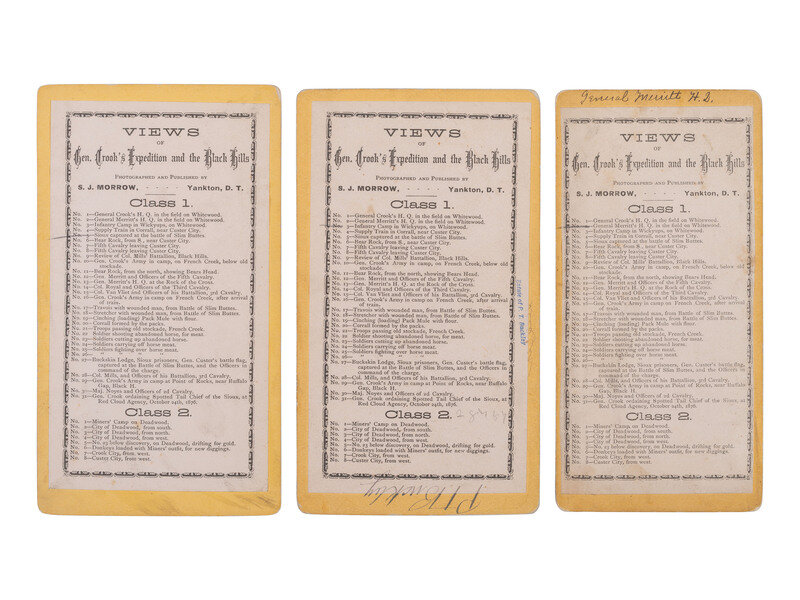 VIEWS
OF
Gen. Crook's Expedition and the Black Hills
PHOTOGRAPHED AND PUBLISHED BY
S. J. MORROW, - - - - Yankton, D. T.
Class 1.
No. 1—General Crook's H. Q. in the field on Whitewood.
No. 2—General Merritt's H. Q. in the field on Whitewood.
No. 3—Infantry Camp in Wickyups, on Whitewood.
No. 4—Supply Train in Corral, near Custer City.
No. 5—Sioux captured at the battle of Slim Buttes.
No. 6—Bear Rock, from 8, near Custer City.
No. 7—Fifth Cavalry leaving Custer City.
No. 8—Fifth Cavalry leaving Custer City.
No. 9—Review of Col. Mills' Battalion, Black Hills.
No. 10—Gen. Crook's Army in camp, on French Creek, below old
stockade.
No. 11—Bear Rock, from the north, showing Bears Head.
No. 12—Gen. Merritt and Officers of the Fifth Cavalry.
No. 13—Gen. Merritt's H. Q. at the Rock of the Cross.
No. 14—Col. Royal and Officers of the Third Cavalry.
No. 15—Col. Van Vliet and Officers of his Battallion, 3rd Cavalry.
No. 16—Gen. Crook's Army in camp on French Creek, after arrival
of train.
No. 17—Travois with wounded man, from Battle of Slim Buttes.
No. 18—Stretcher with wounded man, from Battle of Slim Buttes.
No. 19—Cinching (loading) Pack Mule with flour.
No. 20—Corrall formed by the packs.
No. 21—Troops passing old stockade, French Creek.
No. 22—Soldier shooting abandoned horse, for meat.
No. 23—Soldiers cutting up abandoned horse.
No. 24—Soldiers carrying of horse meat.
No. 25—Soldiers fighting over horse meat.
No. 26—
No. 27—Buckskin Lodge, Sioux prisoners, Gen. Custer's battle flag,
captured at the Battle of Slim Buttes, and the Officers in
command of the charge.
No. 28—Col. Mills, and Officers of his Battallion, 3rd Cavalry.
No. 29—Gen. Crook's Army in camp at Point of Rocks, near Buffalo
Gap, Black H.
No. 30—Maj. Noyes and Officers of 2d Cavalry.
No. 31—Gen. Crook ordaining Spotted Tail Chief of the Sioux, at
Red Cloud Agency, October 24th, 1876.
Class 2.
No. 1—Miners' Camp on Deadwood.
No. 2—City of Deadwood, from south.
No. 3—City of Deadwood, from north.
No. 4—City of Deadwood, from west.
No. 5—No. 15 below discovery, on Deadwood, drifting for gold.
No. 6—Donkeys loaded with Miners' outfit, for new diggings.
No. 7—Crook City, from west.
No. 8—Custer City, from west.
VIEWS
OF
Gen. Crook's Expedition and the Black Hills
PHOTOGRAPHED AND PUBLISHED BY
S. J. MORROW, - - - - Yankton, D. T.
Class 1.
No. 1—General Crook's H. Q. in the field on Whitewood.
No. 2—General Merritt's H. Q. in the field on Whitewood.
No. 3—Infantry Camp in Wickyups, on Whitewood.
No. 4—Supply Train in Corral, near Custer City.
No. 5—Sioux captured at the battle of Slim Buttes.
No. 6—Bear Rock, from 8, near Custer City.
No. 7—Fifth Cavalry leaving Custer City.
No. 8—Fifth Cavalry leaving Custer City.
No. 9—Review of Col. Mills' Battalion, Black Hills.
No. 10—Gen. Crook's Army in camp, on French Creek, below old
stockade.
No. 11—Bear Rock, from the north, showing Bears Head.
No. 12—Gen. Merritt and Officers of the Fifth Cavalry.
No. 13—Gen. Merritt's H. Q. at the Rock of the Cross.
No. 14—Col. Royal and Officers of the Third Cavalry.
No. 15—Col. Van Vliet and Officers of his Battallion, 3rd Cavalry.
No. 16—Gen. Crook's Army in camp on French Creek, after arrival
of train.
No. 17—Travois with wounded man, from Battle of Slim Buttes.
No. 18—Stretcher with wounded man, from Battle of Slim Buttes.
No. 19—Cinching (loading) Pack Mule with flour.
No. 20—Corrall formed by the packs.
No. 21—Troops passing old stockade, French Creek.
No. 22—Soldier shooting abandoned horse, for meat.
No. 23—Soldiers cutting up abandoned horse.
No. 24—Soldiers carrying of horse meat.
No. 25—Soldiers fighting over horse meat.
No. 26—
No. 27—Buckskin Lodge, Sioux prisoners, Gen. Custer's battle flag,
captured at the Battle of Slim Buttes, and the Officers in
command of the charge.
No. 28—Col. Mills, and Officers of his Battallion, 3rd Cavalry.
No. 29—Gen. Crook's Army in camp at Point of Rocks, near Buffalo
Gap, Black H.
No. 30—Maj. Noyes and Officers of 2d Cavalry.
No. 31—Gen. Crook ordaining Spotted Tail Chief of the Sioux, at
Red Cloud Agency, October 24th, 1876.
Class 2.
No. 1—Miners' Camp on Deadwood.
No. 2—City of Deadwood, from south.
No. 3—City of Deadwood, from north.
No. 4—City of Deadwood, from west.
No. 5—No. 15 below discovery, on Deadwood, drifting for gold.
No. 6—Donkeys loaded with Miners' outfit, for new diggings.
No. 7—Crook City, from west.
No. 8—Custer City, from west.
General Merritt H. Q.
VIEWS
OF
Gen. Crook's Expedition and the Black Hills
PHOTOGRAPHED AND PUBLISHED BY
S. J. MORROW, - - - - Yankton, D. T.
Class 1.
No. 1—General Crook's H. Q. in the field on Whitewood.
No. 2—General Merritt's H. Q. in the field on Whitewood.
No. 3—Infantry Camp in Wickyups, on Whitewood.
No. 4—Supply Train in Corral, near Custer City.
No. 5—Sioux captured at the battle of Slim Buttes.
No. 6—Bear Rock, from 8, near Custer City.
No. 7—Fifth Cavalry leaving Custer City.
No. 8—Fifth Cavalry leaving Custer City.
No. 9—Review of Col. Mills' Battalion, Black Hills.
No. 10—Gen. Crook's Army in camp, on French Creek, below old
stockade.
No. 11—Bear Rock, from the north, showing Bears Head.
No. 12—Gen. Merritt and Officers of the Fifth Cavalry.
No. 13—Gen. Merritt's H. Q. at the Rock of the Cross.
No. 14—Col. Royal and Officers of the Third Cavalry.
No. 15—Col. Van Vliet and Officers of his Battallion, 3rd Cavalry.
No. 16—Gen. Crook's Army in camp on French Creek, after arrival
of train.
No. 17—Travois with wounded man, from Battle of Slim Buttes.
No. 18—Stretcher with wounded man, from Battle of Slim Buttes.
No. 19—Cinching (loading) Pack Mule with flour.
No. 20—Corrall formed by the packs.
No. 21—Troops passing old stockade, French Creek.
No. 22—Soldier shooting abandoned horse, for meat.
No. 23—Soldiers cutting up abandoned horse.
No. 24—Soldiers carrying of horse meat.
No. 25—Soldiers fighting over horse meat.
No. 26—
No. 27—Buckskin Lodge, Sioux prisoners, Gen. Custer's battle flag,
captured at the Battle of Slim Buttes, and the Officers in
command of the charge.
No. 28—Col. Mills, and Officers of his Battallion, 3rd Cavalry.
No. 29—Gen. Crook's Army in camp at Point of Rocks, near Buffalo
Gap, Black H.
No. 30—Maj. Noyes and Officers of 2d Cavalry.
No. 31—Gen. Crook ordaining Spotted Tail Chief of the Sioux, at
Red Cloud Agency, October 24th, 1876.
Class 2.
No. 1—Miners' Camp on Deadwood.
No. 2—City of Deadwood, from south.
No. 3—City of Deadwood, from north.
No. 4—City of Deadwood, from west.
No. 5—No. 15 below discovery, on Deadwood, drifting for gold.
No. 6—Donkeys loaded with Miners' outfit, for new diggings.
No. 7—Crook City, from west.
No. 8—Custer City, from west.